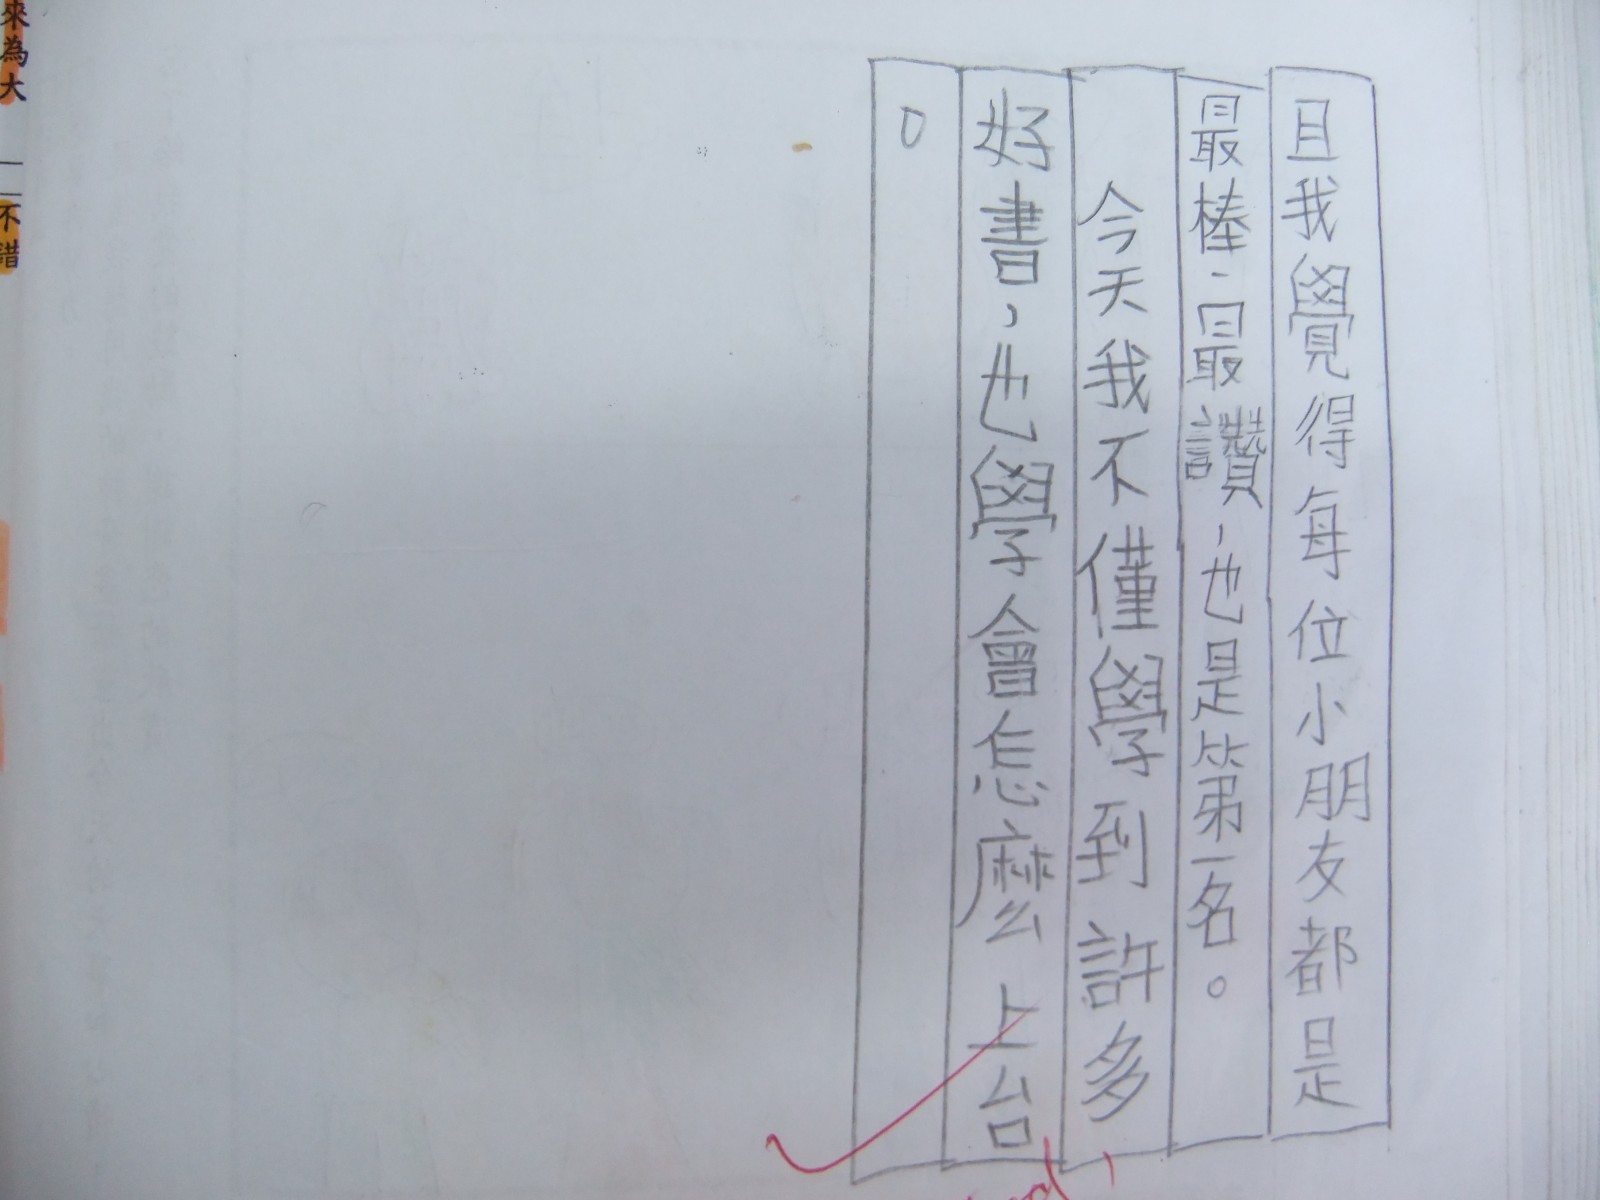 且我覺得每位小朋友都是
最棒、最讚，也是第一名。
今天我不僅學到許多
好書，也學會怎麼上台
。
來為大
不錯